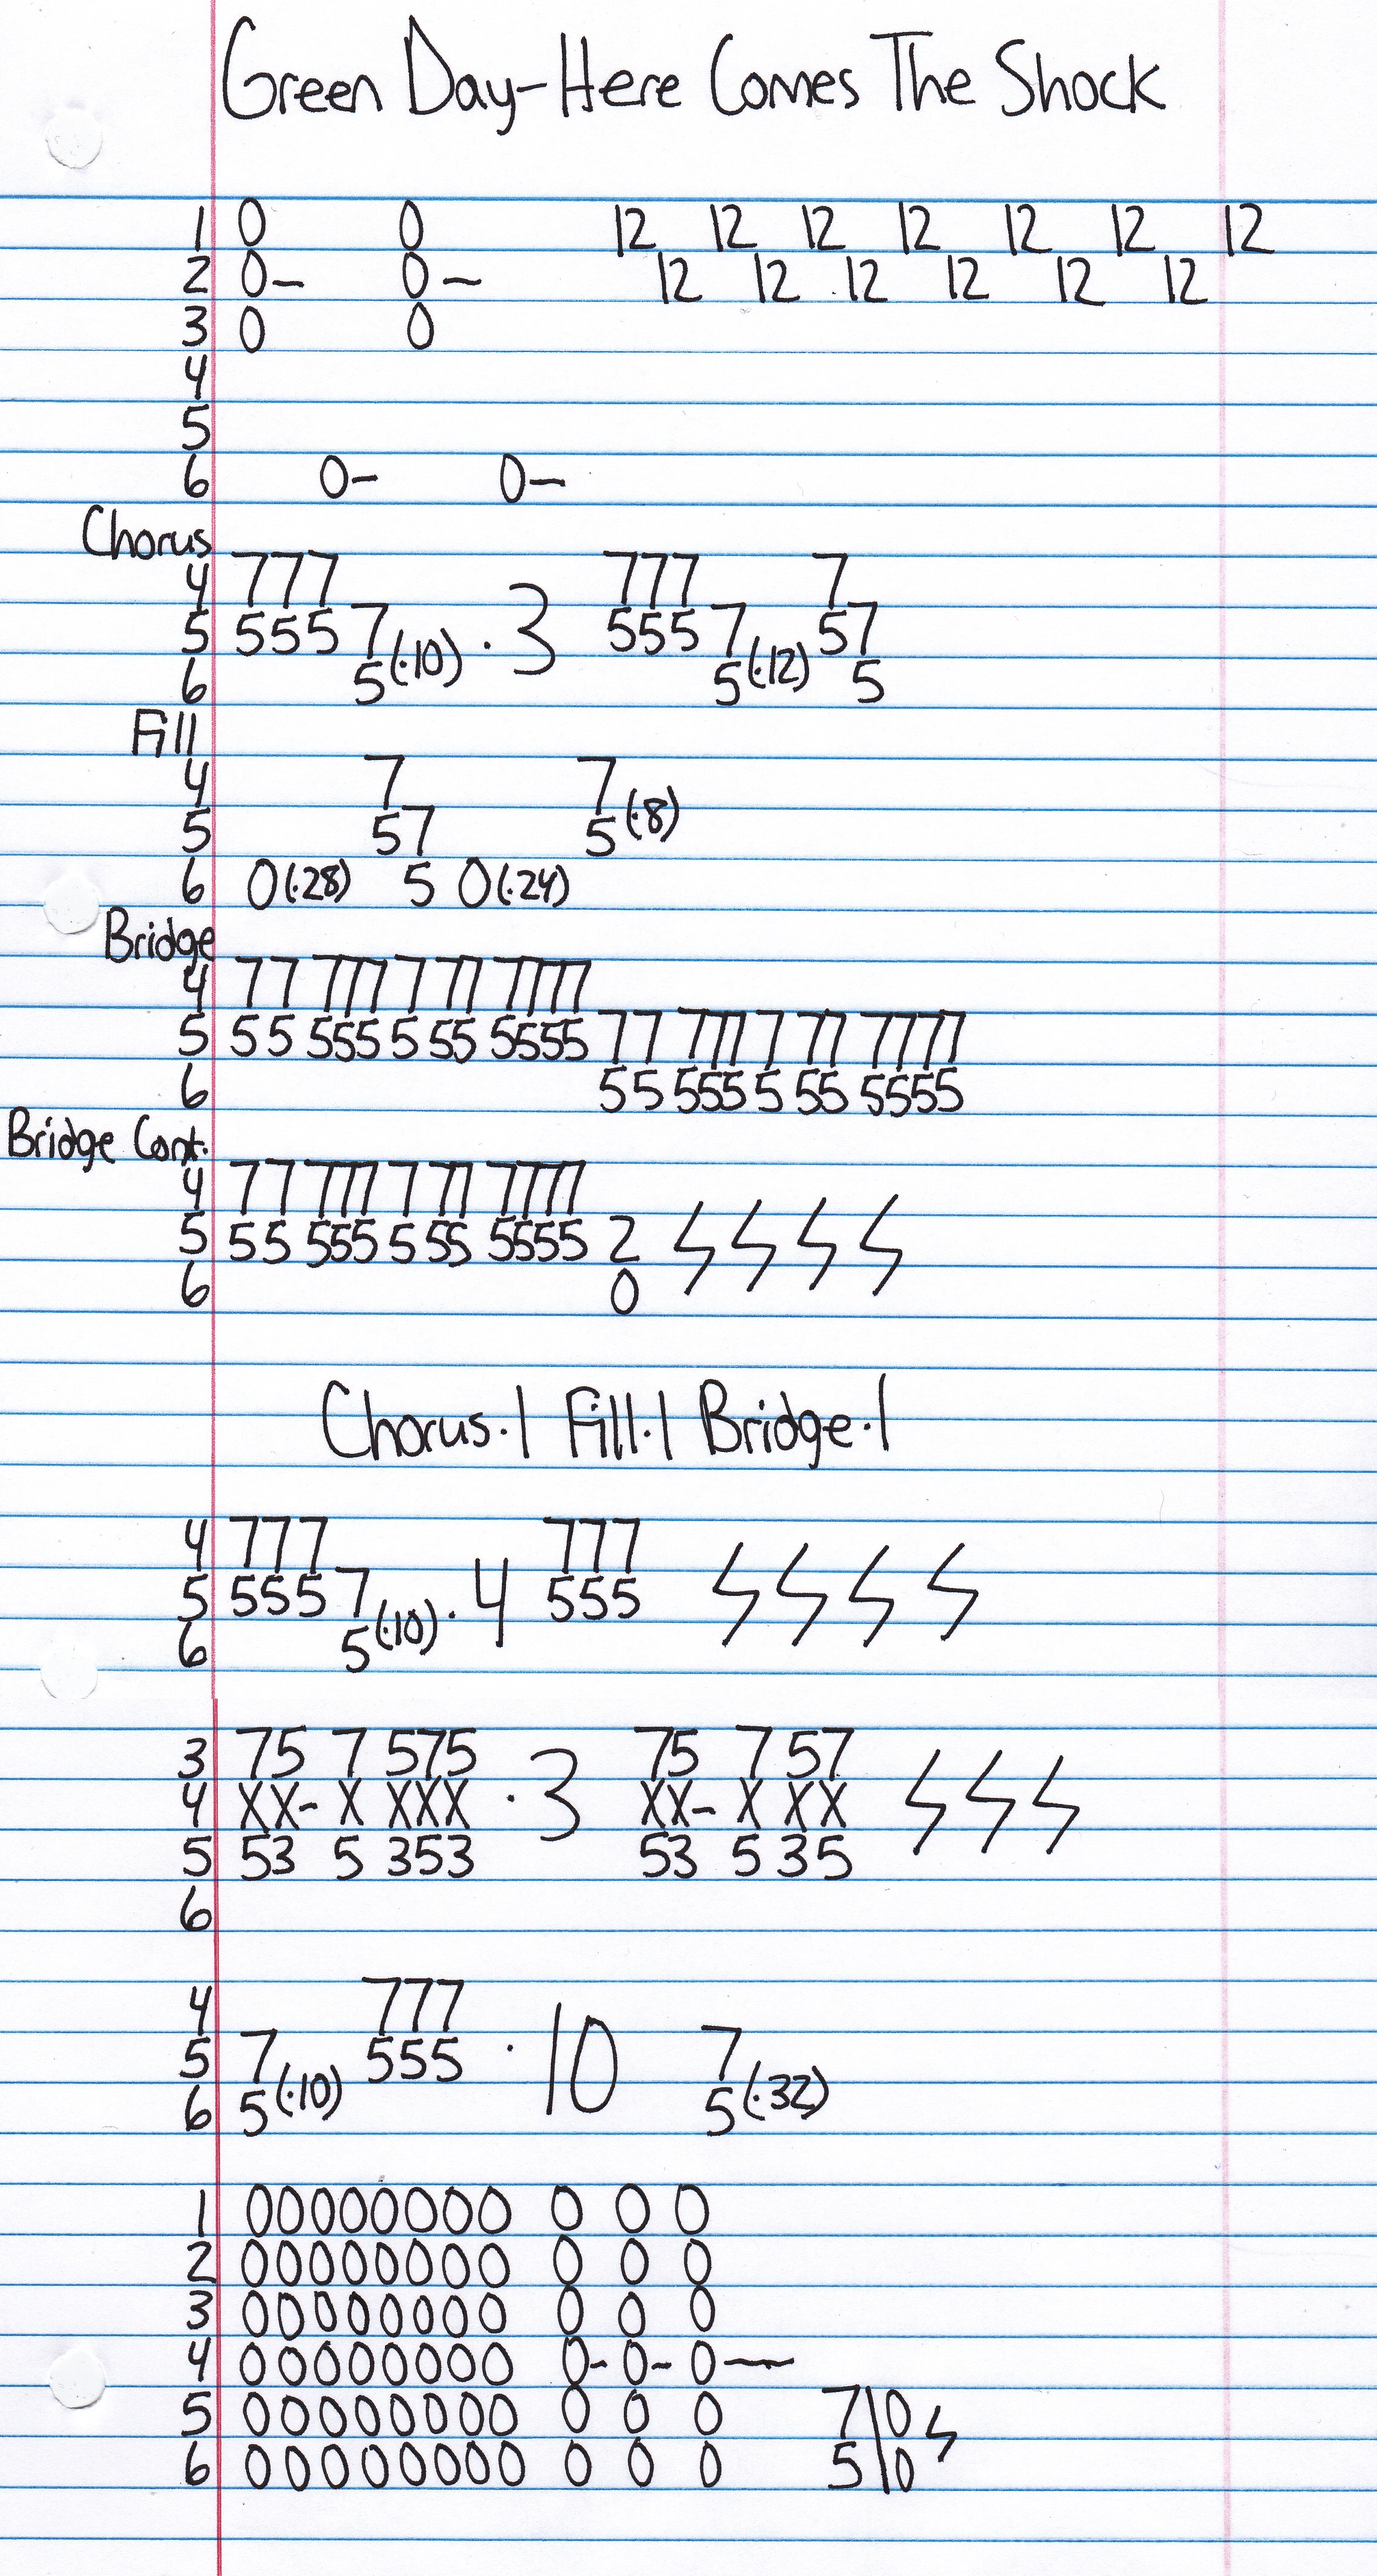 Green Day-Here Comes The Shock
1 0 0 12 12 12 12 12 12 12
2 0- 0- 12 12 12 12 12 12
3 0 0
4
5
6 0- 0-
Chorus
4 777 777 7
5 555 7 (·10) · 3 555 7 (·12) 57
6 5 5 5
Fill
4 7 7
5 57 5 (·8)
6 0(·28) 5 0(·24)
Bridge
4 77 777 7 77 7777
5 55 555 5 55 5555 77 777 7 77 7777
6 55 555 5 55 5555
Bridge Cont.
4 77 777 7 77 7777
5 55 555 5 55 5555 2
6 0
Chorus·1 Fill·1 Bridge·1
4 777 777
5 555 7 (·10) · 4 555
6 5
3 75 7 575 75 7 57
4 XX- X XXX · 3 XX- X XX
5 53 5 353 53 5 35
6
4 777
5 7 (·10) 555 · 10 7 (·32)
6 5 5
1 00000000 0 0 0
2 00000000 0 0 0
3 00000000 0 0 0
4 00000000 0-0-0—
5 00000000 0 0 0 7\0
6 00000000 0 0 0 5\0